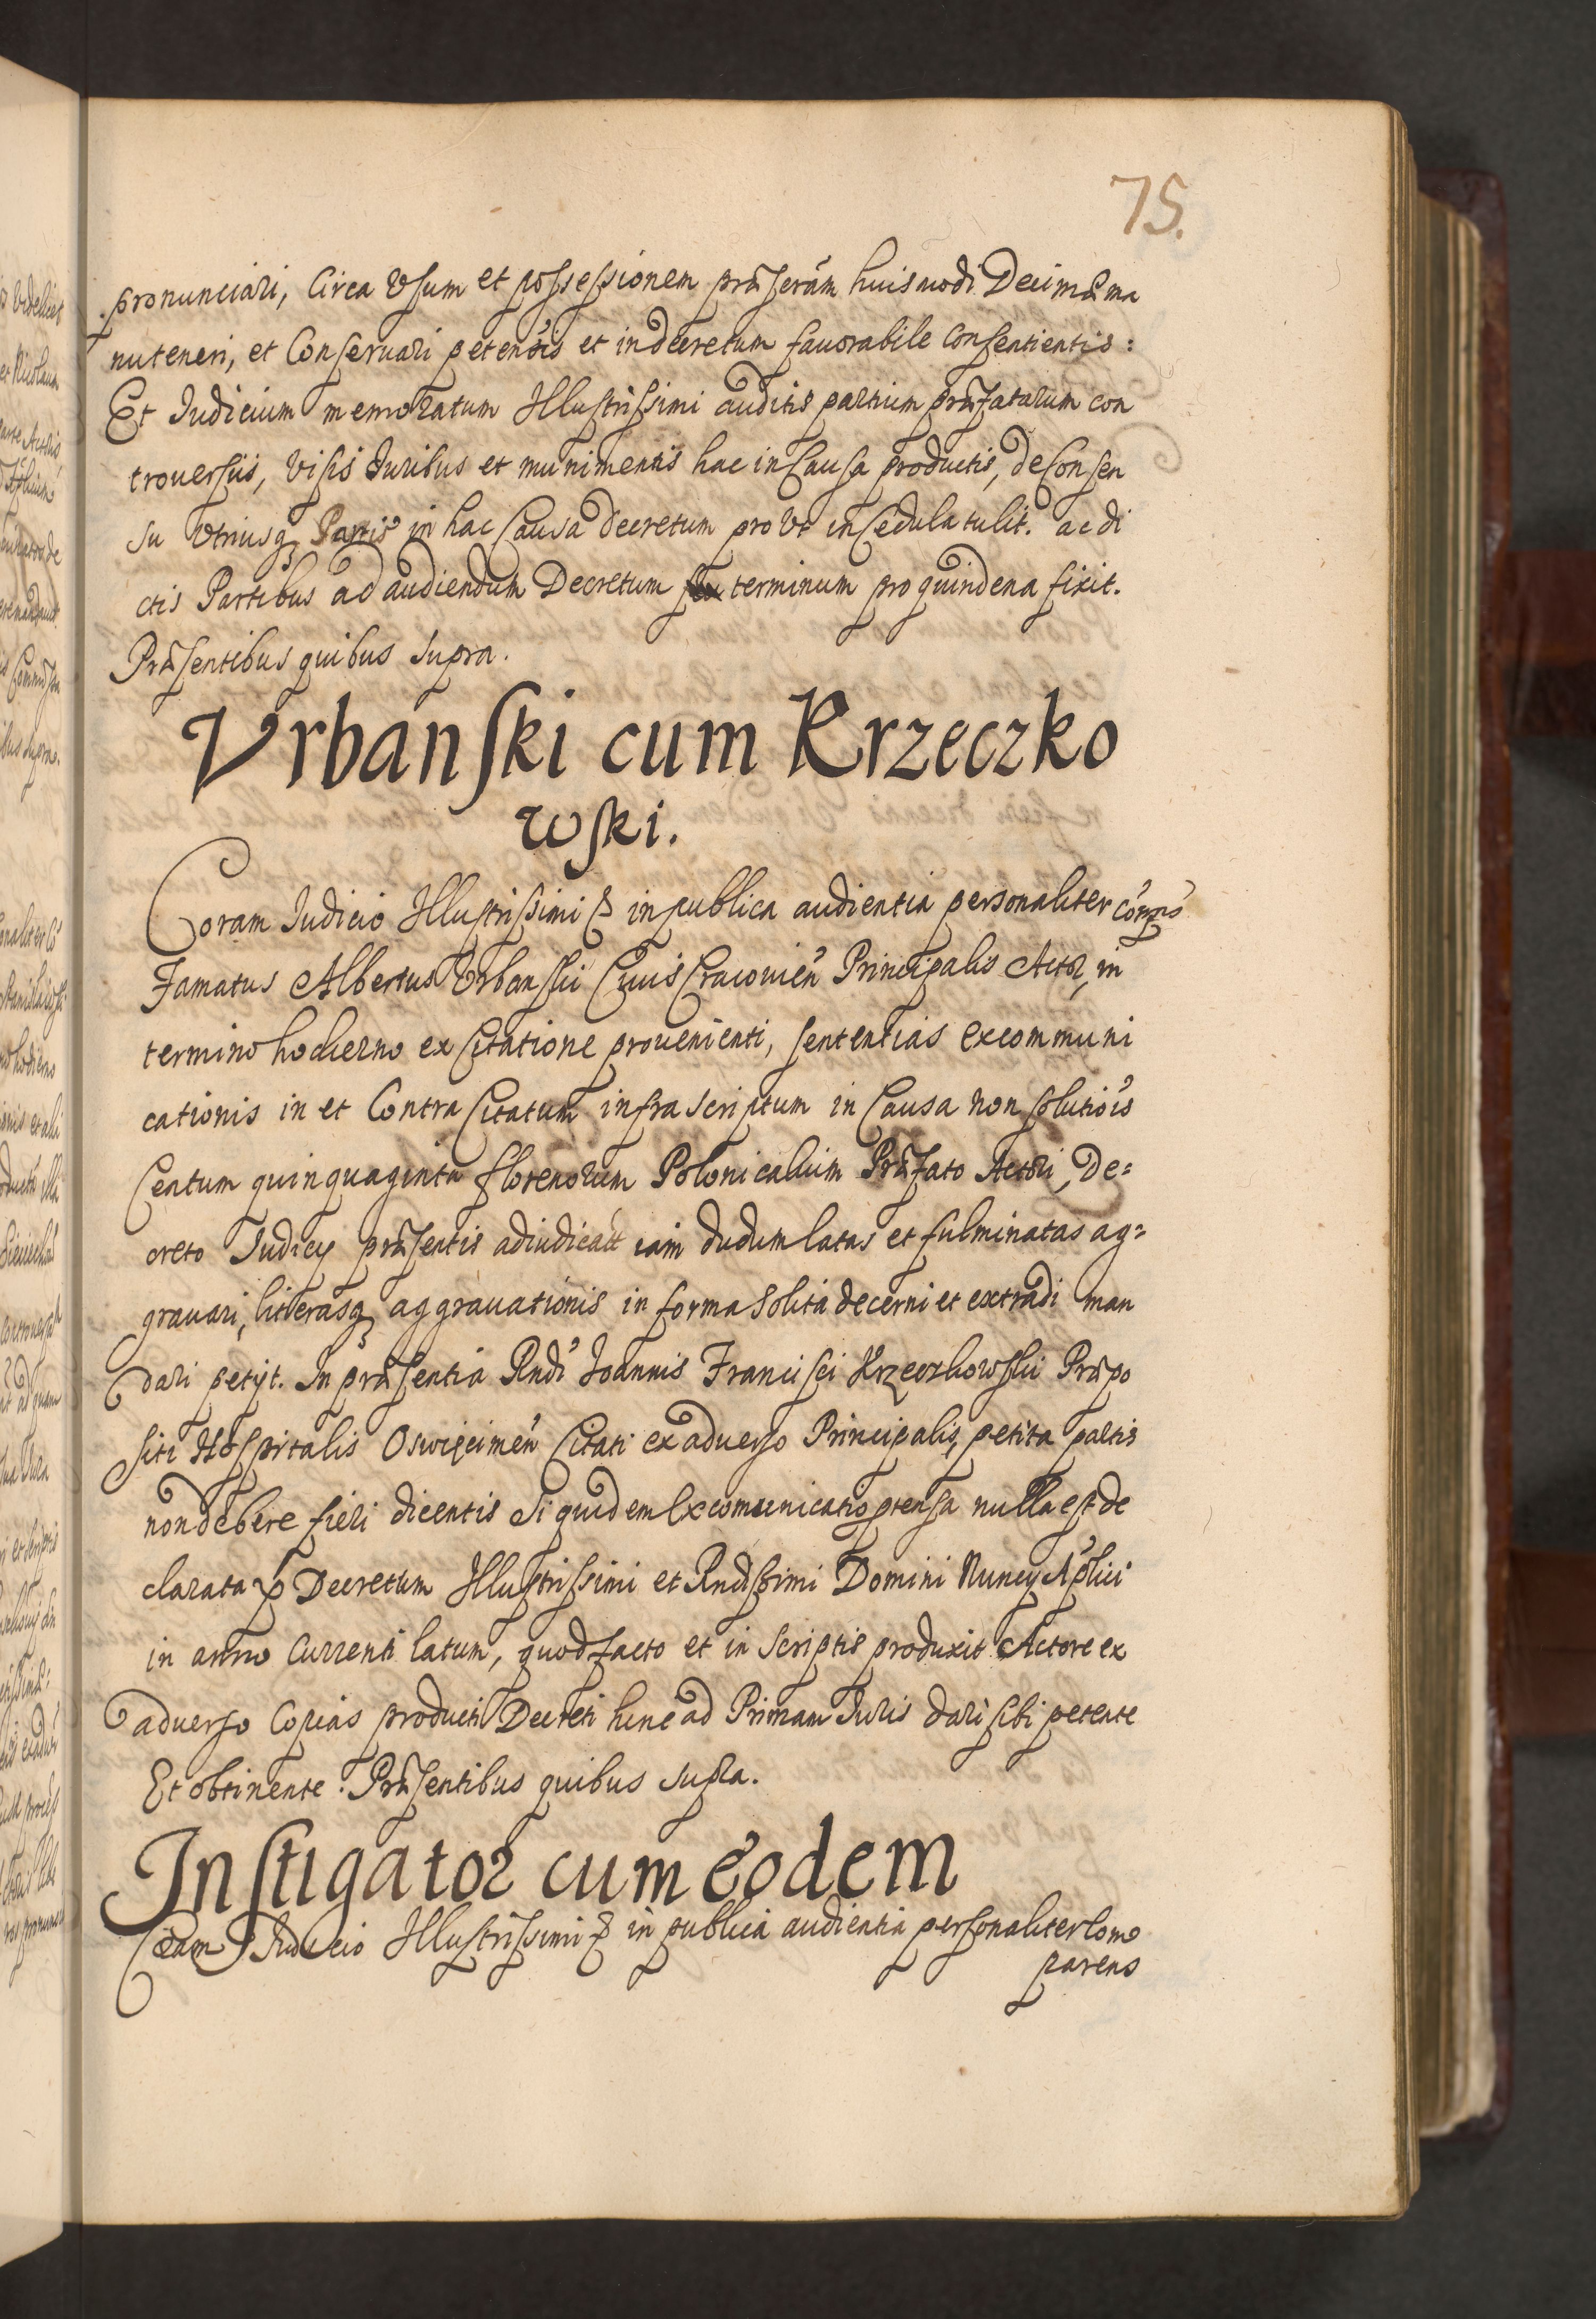 75.
pronunciari, Circa Usum et possessionem præserám huismodi Decimæ ma
nuteneri, et Conseruari petentis et in decretum fauorabile consentientis:
Et Judicium memoratum Illustrissimi auditis partium præfatarum con
trouersiis, Visis Juribus et munimentis hac in Causa productis, de Consen
su Utriusq Partis in hac Causa decretum pro ut in Cedula tulit. ac di
ctis Partibus ad audiendum Decretum terminum pro quindena fixit.
Præsentibus quibus supra.
Vrbanski cum Krzeczko
wski.
Coram Judicio Illustrissimi & in publica audientia personaliter comps
Famatus Albertus Urbanski Ciuis Cracouien Principalis Actor, in
termino hodierno ex Citatione prouenienti, sententias excommuni
cationis in et Contra Citatum infrascriptum in Causa non solutiois
Centum quinquaginta florenorum Polonicalium Præfato Actori, De=
creto Judicy præsentis adiudicatt iam dudum latas et fulminatas ag=
grauari, literasq aggrauationis in forma solita decerni et extradi man
dari petyt. In præsentia Rndi Joannis Francisci Krzeczkowski Præpo
siti Hospitalis Oswięcimen Citati ex aduerso Principalis, petita partis
non debere fieri dicentis Siquidem Excomunicatio ptensa nulla est de
clarata p Decretum Illustrissimi et Rndissimi Domini Nuncy Aplici
in anno Currenti latum, quod facto et in scriptis produxit Actore ex
aduerso Copias producti Decreti hinc ad Primam Juris dari sibi petente
Et obtinente. Præsentibus quibus supra.
Instigator cum eodem
Coram Judicio Illustrissimi & in publica audientia personaliter Com
parens